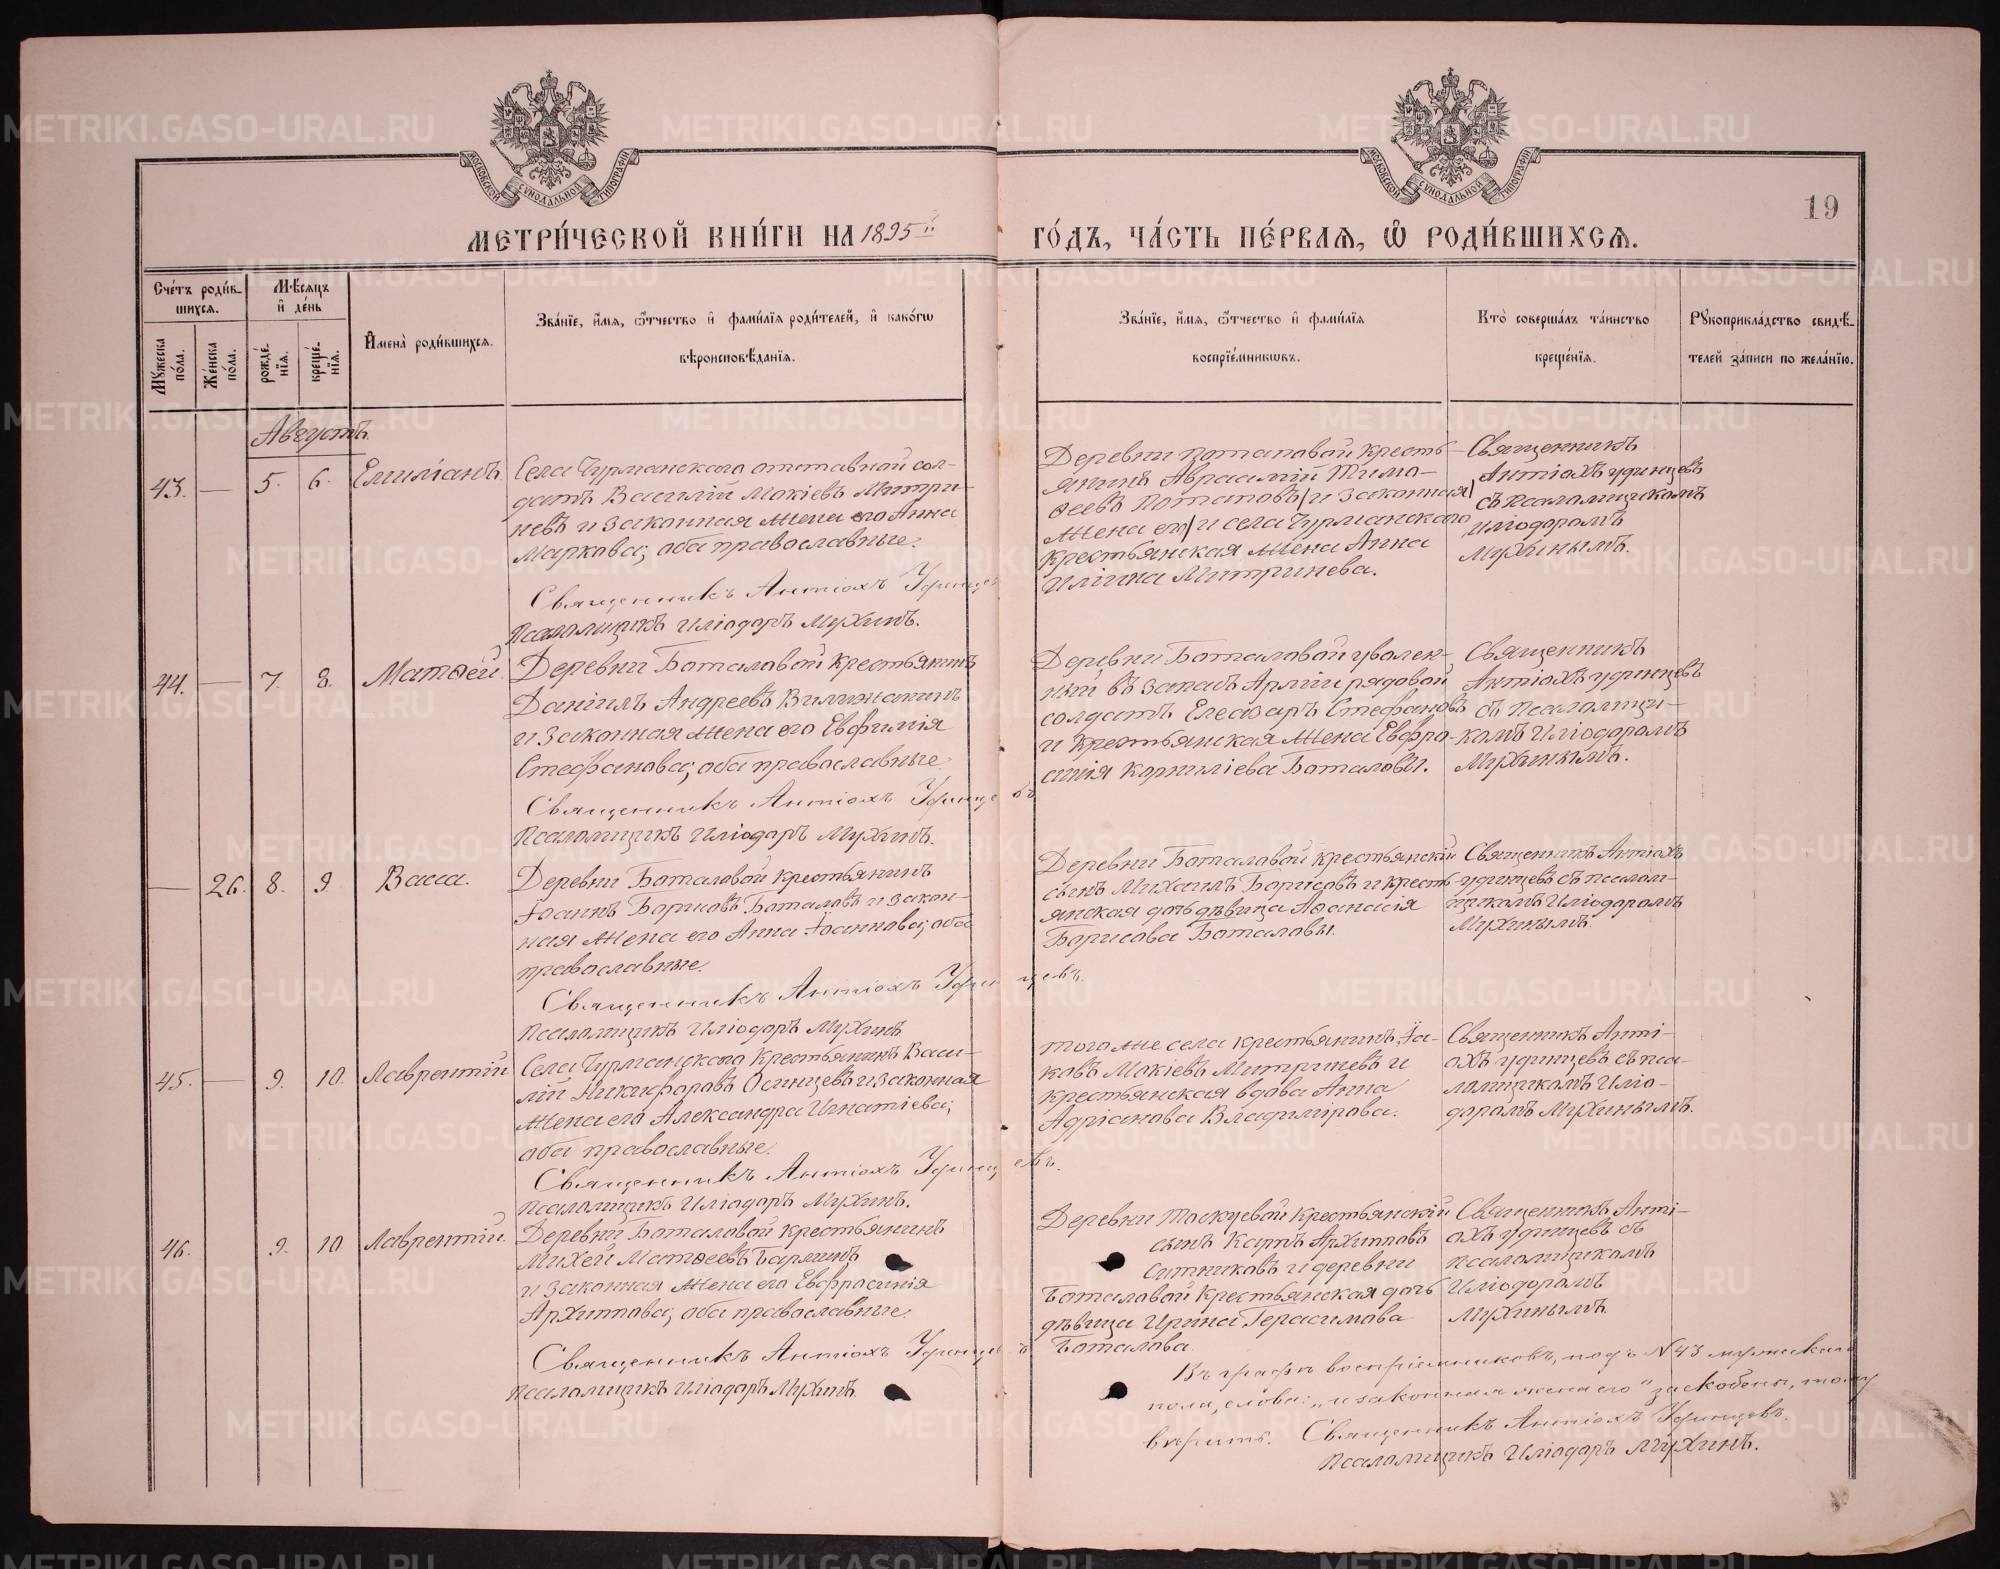 МОСКОВСКОЙ СѴНОДАЛЬНОЙ ТИПОГРАФІИ
МОСКОВСКОЙ СѴНОДАЛЬНОЙ ТИПОГРАФІИ
19
МЕТРИ́ЧЕСКОЙ КНИ́ГИ НА 1895й
ГО́ДЪ, ЧА́СТЬ ПЕ́РВАЯ, Ѡ҆ РОДИ́ВШИХСЯ.
Сче́тъ роди́в-
шихся.
Мѣ́сяцъ
и҆ де́нь
Мꙋ́жеска
по́ла.
Же́нска
по́ла.
рожде́-
нїя.
креще́-
нїя.
И҆мена̀ роди́вшихся.
Зва́нїе, и҆́мя, ѻ҆́тчество и҆ фами́лїя роди́телей, и҆ како́гѡ
вѣроисповѣ́данїя.
Зва́нїе, и҆́мя, ѻ҆́тчество и҆ фами́лїя
воспрїе́мникѡвъ.
Кто̀ соверша́лъ та́инство
креще́нїя.
Рꙋкоприкла́дство свидѣ́-
телей за́писи по жела́нїю.
Августъ.
43. — 5. 6. Емиліанъ.
Села Чурманскаго отставной сол-
датъ Василій Мокіевъ Митри-
невъ и законная жена его Анна
Маркова; оба православные.
Священникъ Антіохъ Удинцевъ
Псаломщикъ Иліодоръ Мухинъ.
Деревни Потаповой кресть-
янинъ Аврамій Тимо-
ѳеевъ Потаповъ (и законная
жена его) и села Чурманскаго
крестьянская жена Анна
Ильина Митринева.
Священникъ
Антіохъ Удинцевъ
съ псаломщикомъ
Иліодоромъ
Мухинымъ.
44. — 7. 8. Матѳей.
Деревни Боталовой крестьянинъ
Даніилъ Андреевъ Вилижанинъ
и законная жена его Евфимія
Стефанова; оба православные
Священникъ Антіохъ Удинцевъ
Псаломщикъ Иліодоръ Мухинъ.
Деревни Боталовой уволен-
ный въ запасъ Арміи рядовой
солдатъ Елеазаръ Стефановъ
и крестьянская жена Евфра-
синія Корниліева Боталовы.
Священникъ
Антіохъ Удинцевъ
съ псаломщи-
комъ Иліодоромъ
Мухинымъ.
— 26. 8. 9. Васса.
Деревни Боталовой крестьянинъ
Іоаннъ Борисовъ Боталовъ и закон-
ная жена его Анна Іоаннова; оба
православные.
Священникъ Антіохъ Удинцевъ.
Псаломщикъ Иліодоръ Мухинъ
Деревни Боталовой крестьянскій
сынъ Михаилъ Борисовъ и кресть-
янская дочь дѣвица Аѳанасія
Борисова Боталовы.
Священникъ Антіохъ
Удинцевъ съ псалом-
щикомъ Иліодоромъ
Мухинымъ.
45. — 9. 10. Лаврентій
Села Чурманскаго крестьянинъ Васи-
лій Никифоровъ Осинцевъ и законная
жена его Александра Игнатіева;
оба православные.
Священникъ Антіохъ Удинцевъ.
Псаломщикъ Иліодоръ Мухинъ.
того же села крестьянинъ Іа-
ковъ Мокіевъ Митриневъ и
крестьянская вдова Анна
Адріанова Владимірова.
Священникъ Анті-
охъ Удинцевъ съ пса-
ломщикомъ Иліо-
доромъ Мухинымъ.
46. 9. 10 Лаврентій.
Деревни Боталовой крестьянинъ
Михей Матѳеевъ Барминъ
и законная жена его Евфрасинія
Архиппова; оба православные.
Священникъ Антіохъ Удинцевъ
Псаломщикъ Иліодоръ Мухинъ.
Деревни крестьянскій
сынъ Карпъ Архипповъ
Ситниковъ и деревни
Боталовой крестьянская дочь
дѣвица Ирина Герасимова
Боталова.
Священникъ Анті-
охъ Удинцевъ съ
псаломщикомъ
Иліодоромъ
Мухинымъ.
Въ графѣ воспріемниковъ, подъ N 43 мужескаго
пола, слова: „и законная жена его" заскоблены, тому
вѣрить. Священникъ Антіохъ Удинцевъ.
Псаломщикъ Иліодоръ Мухинъ.
METRIKI.GASO-URAL.RU